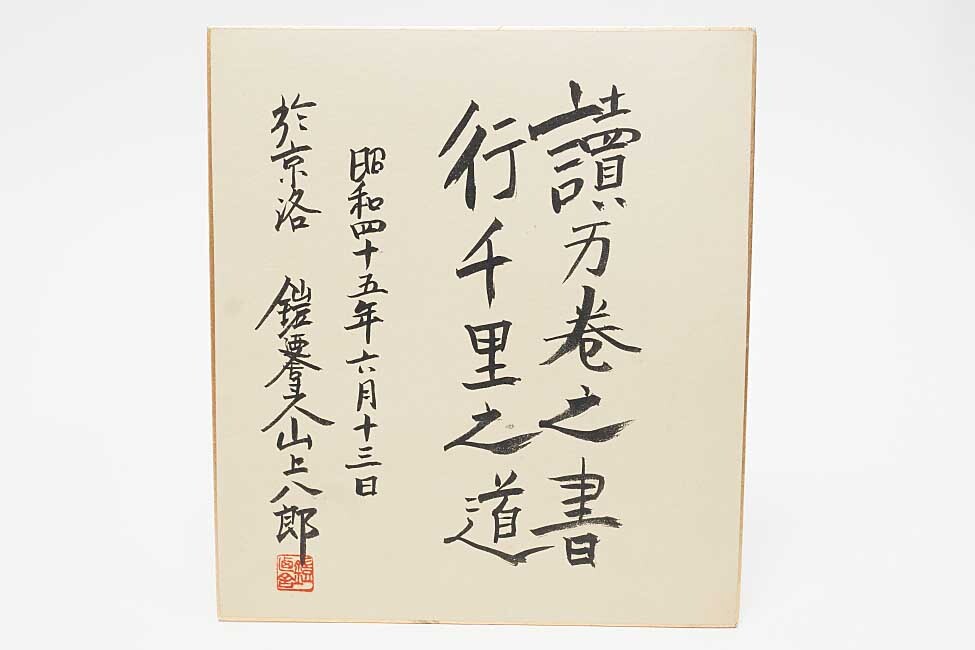 讀万巻之書
行千里之道
昭和四十五年六月十三日
於京洛 鎧軒主人山上八郎